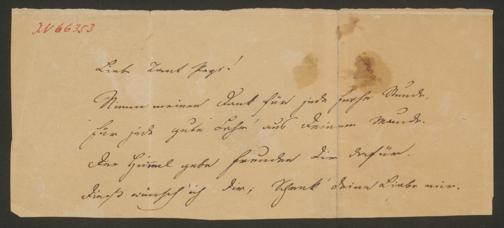 IN 66353
Liebe Tant Pepi!
Nimm meinen Dank für jede frohe Stunde,
für jede gute Lehr' aus Deinem Munde.
Der Himmel gebe Freuden Dir dafür.
Dieß wünsch' ich Dir; Schenk' Deine Liebe mir.